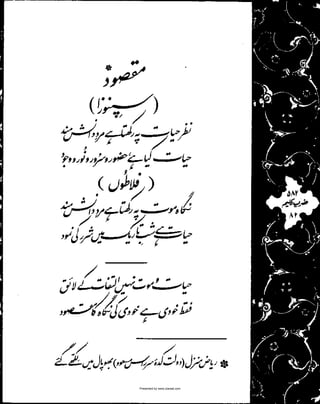 مقصود
(سپینوزا)
نظر حیات پہ رکھتا ہے مردِ دانش مند
حیات کیا ہے، حضور و سرور و نور و وجود
(فلاطوں)
نگاہ موت پہ رکھتا ہے مردِ دانش مند
حیات ہے شبِ تاریک میں شرر کی نمود
حیات و موت نہیں التفات کے لائق
فقط خودی ہے خودی کی نگاہ کا مقصود
* ریاض منزل (دولت کدۂ سر راس مسعود) بھوپال میں لکھے گئے
۵۸۲
ضرب کلیم
۸۲
Presented by www.iqbalis.com